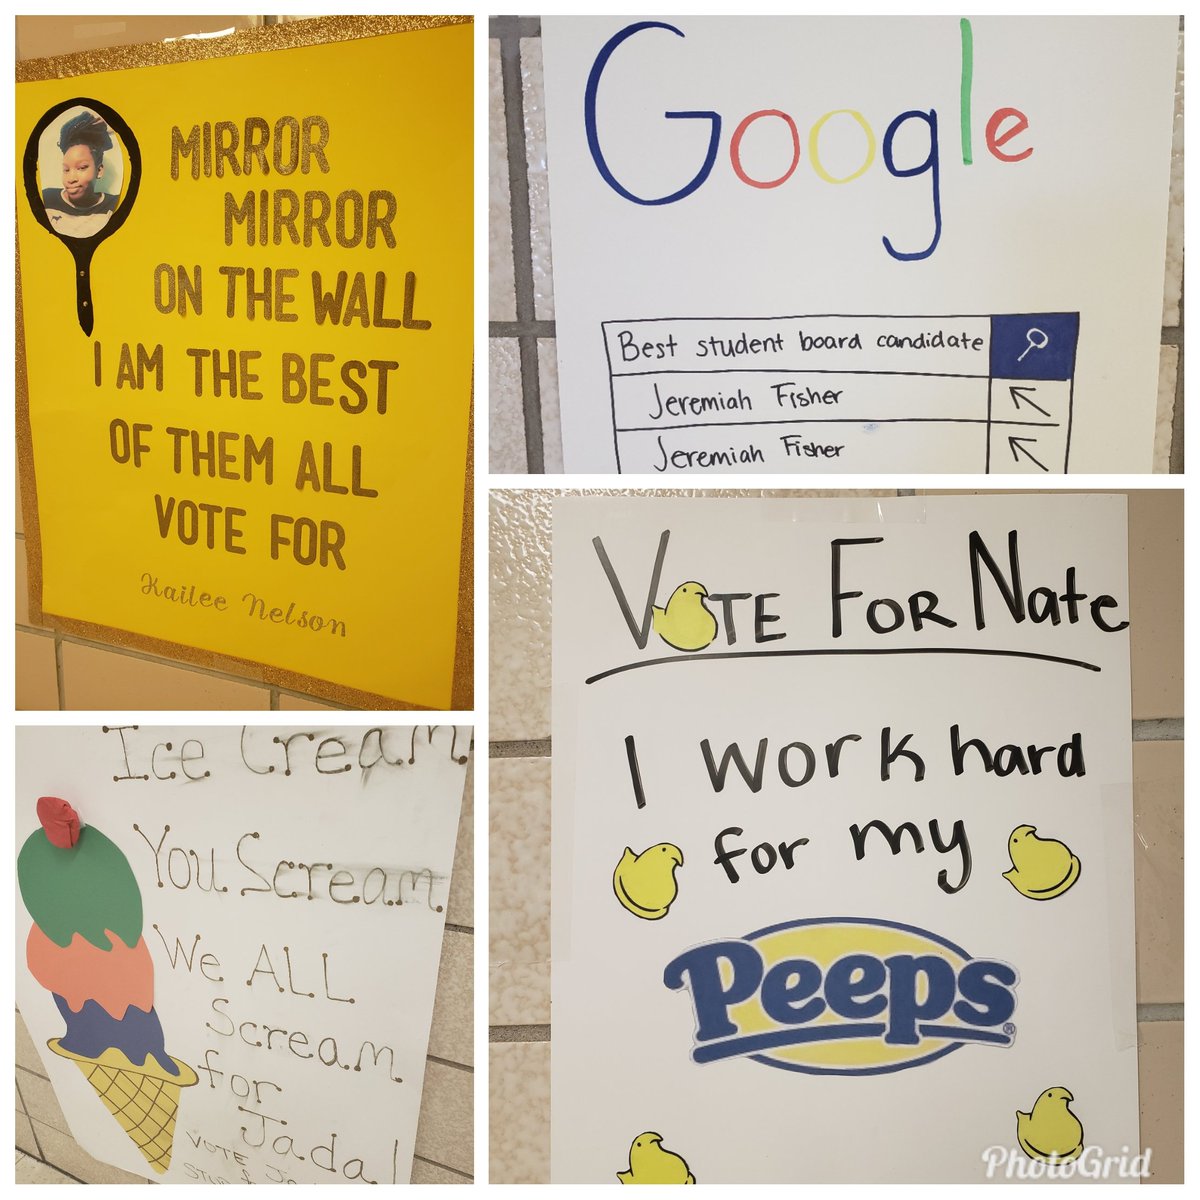 MIRROR
MIRROR
ON THE WALL
I AM THE BEST
OF THEM ALL
VOTE FOR
Kailee Nelson
Google
Best student board candidate
Jeremiah Fisher
Jeremiah Fisher
Ice Cream
You Scream
We ALL
Scream
for
Jada!
VOTE
VOTE FOR Nate
I work hard
for my
Peeps®
PhotoGrid